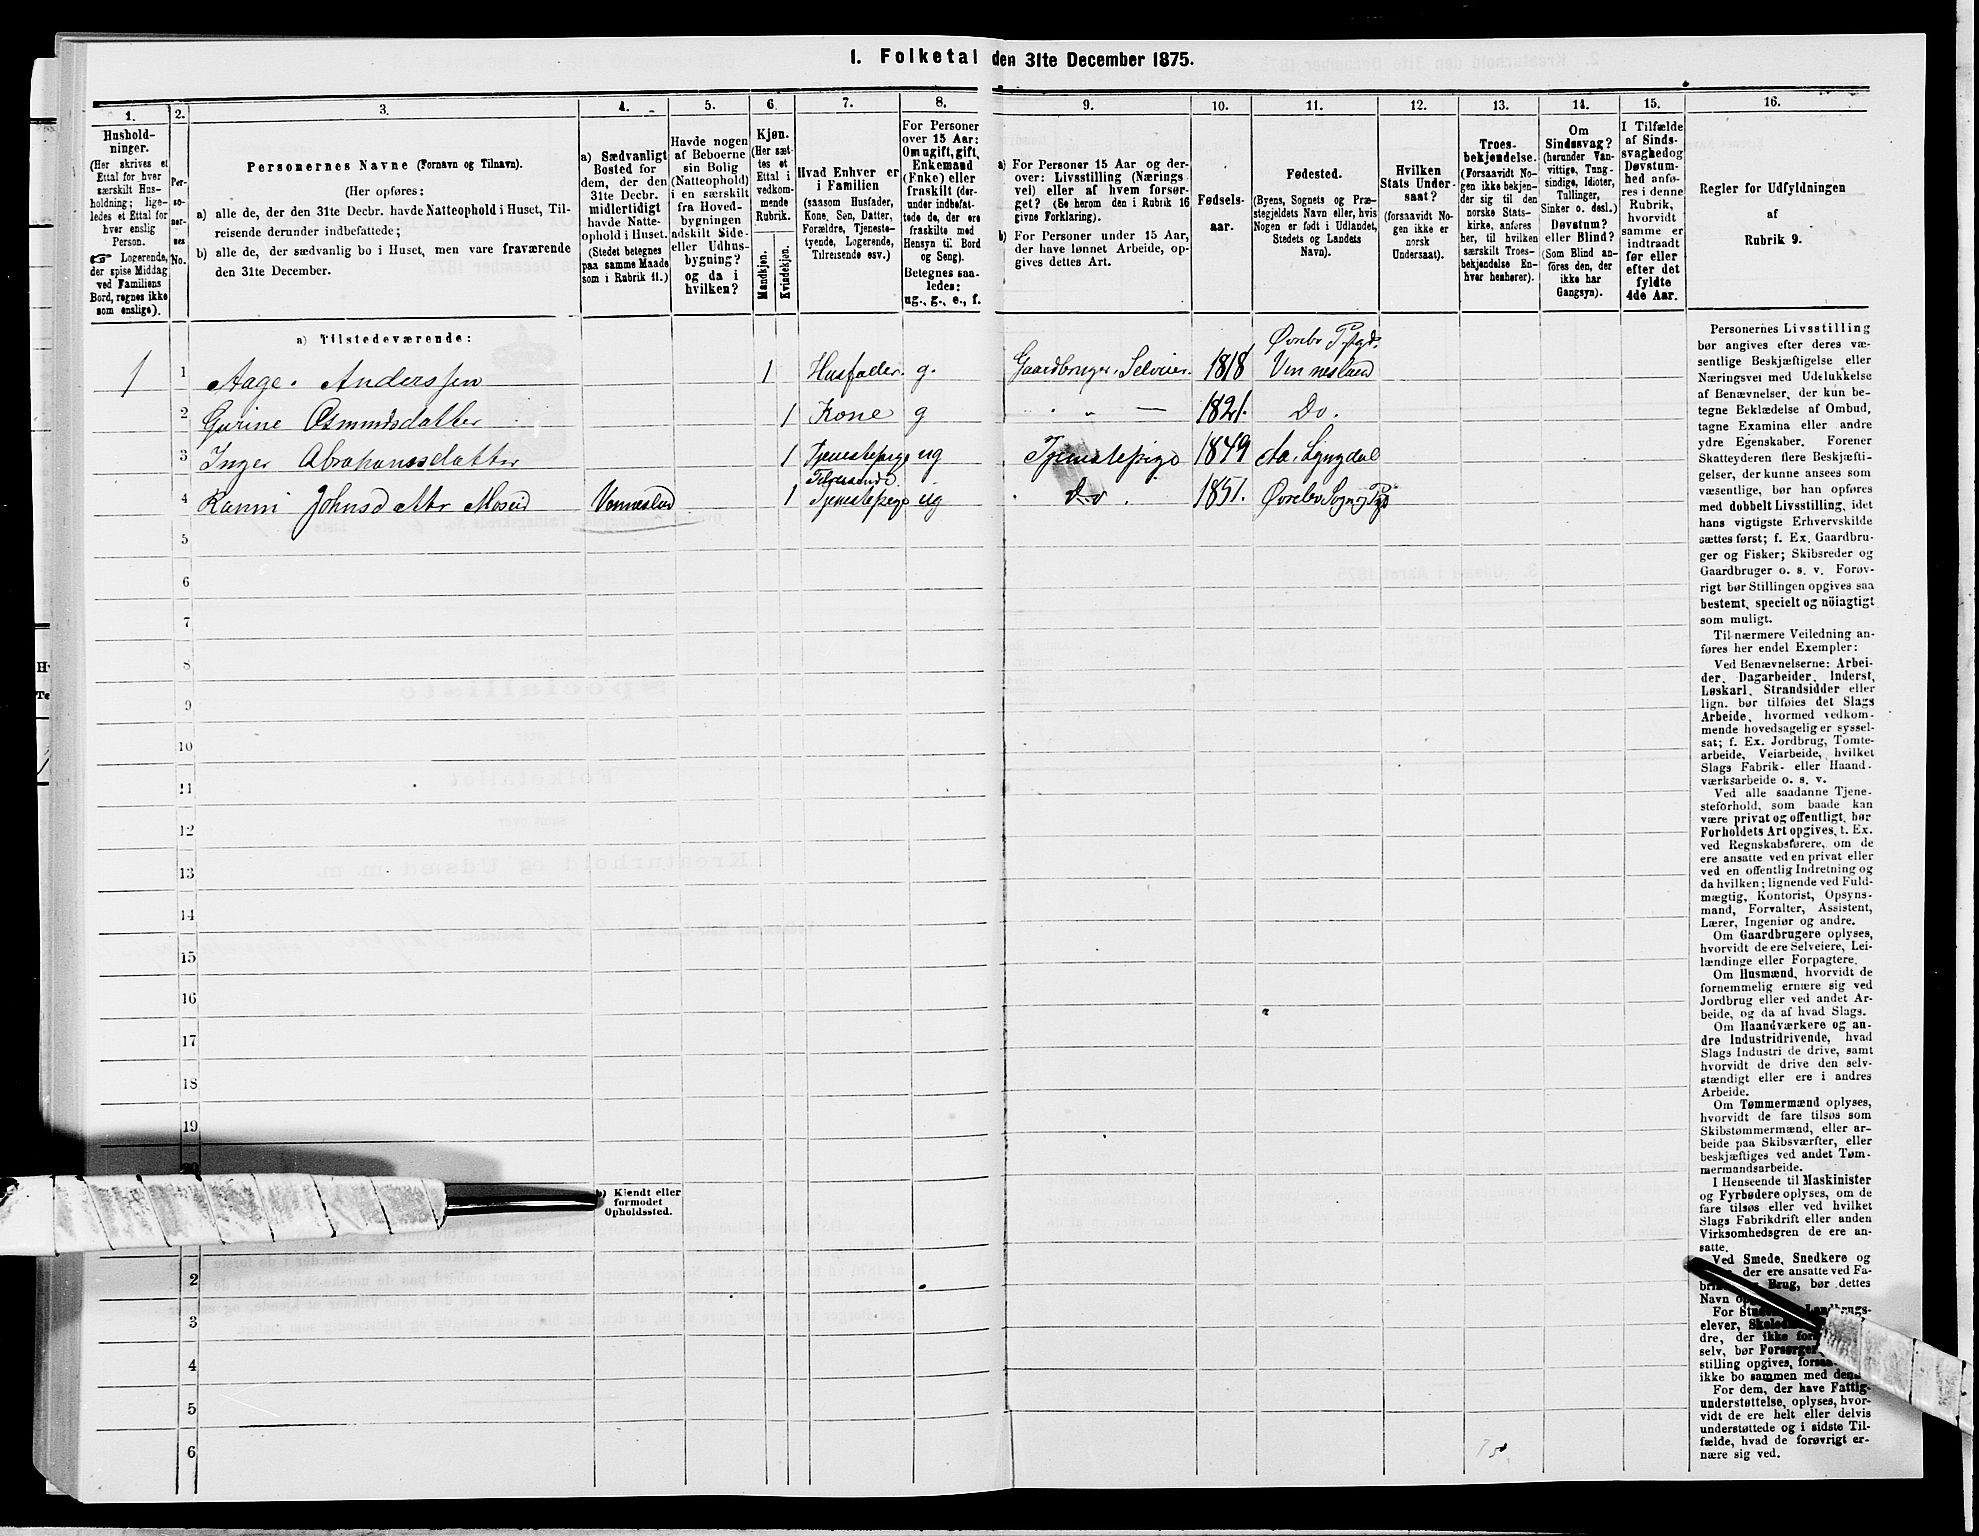 I. Folketal den 31te December 1875.
1.
Hushold-
ninger.
(Her skrives et
Ettal for hver
særskilt Hus-
holdning; lige-
ledes et Ettal for
hver enslig
Person.
Logerende,
der spise Middag
ved Familiens
Bord, regnes ikke
som enslige).
2.
Per-
so-
ner-
nes
No.
3.
Personernes Navne (Fornavn og Tilnavn).
(Her opføres:
a) alle de, der den 31te Decbr. havde Natteophold i Huset, Til-
reisende derunder indbefattede;
b) alle de, der sædvanlig bo i Huset, men vare fraværende
den 31te December.
4.
a) Sædvanligt
Bosted for
dem, der den
31te Decbr.
midlertidigt
havde Natte-
ophold i Huset.
(Stedet betegnes
paa samme Maade
som i Rubrik 11.)
5.
Havde nogen
af Beboerne
sin Bolig
(Natteophold)
i en særskilt
fra Hoved-
bygningen
adskilt Side-
eller Udhus-
bygning?
og da i
hvilken?
6.
Kjøn.
(Her sæt-
tes et
Ettal i
vedkom-
mende
Rubrik.
Mandkjøn.
Kvindekjøn.
7.
Hvad Enhver er
i Familien
(saasom Husfader,
Kone, Søn, Datter,
Forældre, Tjeneste-
tyende, Logerende,
Tilreisende osv.)
8.
For Personer
over 15 Aar:
Om ugift, gift,
Enkemand
(Enke) eller
fraskilt (der-
under indbefat-
tede de, der ere
fraskilte med
Hensyn til Bord
og Seng).
Betegnes saa-
ledes:
ug., g., e., f.
9.
a) For Personer 15 Aar og der-
over: Livsstilling (Nærings-
vei) eller af hvem forsør-
get? (Se herom den i Rubrik 16
givne Forklaring).
b) For Personer under 15 Aar,
der have lønnet Arbeide, op-
gives dettes Art.
10.
Fødsels-
aar.
11.
Fødested.
(Byens, Sognets og Præ-
stegjeldets Navn eller, hvis
Nogen er født i Udlandet,
Stedets og Landets
Navn).
12.
Hvilken
Stats Under-
saat?
(forsaavidt No-
gen ikke er
norsk
Undersaat).
13.
Troes-
bekjendelse.
(Forsaavidt No-
gen ikke bekjen-
der sig til den
norske Stats-
kirke, anføres
her, til hvilken
særskilt Troes-
bekjendelse En-
hver henhører).
14.
Om
Sindssvag?
(herunder Van-
vittige, Tung-
sindige, Idioter,
Tullinger,
Sinker o. desl.)
Døvstum?
eller Blind?
(Som Blind an-
føres den, der
ikke har
Gangsyn).
15.
I Tilfælde
af Sinds-
svaghed og
Døvstum-
hed anfø-
res i denne
Rubrik,
hvorvidt
samme er
indtraadt
før eller
efter det
fyldte
4de Aar.
16.
Regler for Udfyldningen
af
Rubrik 9.
a) Tilstedeværende:
Øvrebø Pstgd.
1 1 Aage. Anderssen 1 Husfader. g. Gaardbruger, Selveier. 1818 Vennesland
2 Gurine Osmundsdatter 1 Kone g " — 1821. Do.
3 Inger Abrahamsdatter 1 Tjenestepige ug Tjenestepige 1849 Aa. Lyngdal
Tilreisende
4 Ranni Johnsdattr Moseid Vennesland 1 Tjenestepige ug Do. 1851. Øvrebø Sogn og Pgd
5
6
7
8
9
10
11
12
13
14
15
16
17
18
19
20
b) Kjendt eller
formodet
Opholdssted.
2
3
4
5
6
Personernes Livsstilling
bør angives efter deres væ-
sentlige Beskjæftigelse eller
Næringsvei med Udelukkelse
af Benævnelser, der kun be-
tegne Beklædelse af Ombud,
tagne Examina eller andre
ydre Egenskaber. Forener
Skatteyderen flere Beskjæfti-
gelser, der kunne ansees som
væsentlige, bør han opføres
med dobbelt Livsstilling, idet
hans vigtigste Erhvervskilde
sættes først; f. Ex. Gaardbru-
ger og Fisker; Skibsreder og
Gaardbruger o. s. v. Forøv-
rigt bør Stillingen opgives saa
bestemt, specielt og nöiagtigt
som muligt.
Til nærmere Veiledning an-
føres her endel Exempler:
Ved Benævnelserne: Arbei-
der, Dagarbeider, Inderst,
Løskarl, Strandsidder eller
lign. bør tilføies det Slags
Arbeide, hvormed vedkom-
mende hovedsagelig er syssel-
sat; f. Ex. Jordbrug, Tomte-
arbeide, Veiarbeide, hvilket
Slags Fabrik- eller Haand-
værksarbeide o. s. v.
Ved alle saadanne Tjene-
steforhold, som baade kan
være privat og offentligt, bør
Forholdets Art opgives, t. Ex.
ved Regnskabsførere, om de
ere ansatte ved en privat eller
ved en offentlig Indretning og
da hvilken; lignende ved Fuld-
mægtig, Kontorist, Opsyns-
mand, Forvalter, Assistent,
Lærer, Ingeniør og andre.
Om Gaardbrugere oplyses,
hvorvidt de ere Selveiere, Lei-
lændinge eller Forpagtere.
Om Husmænd, hvorvidt de
fornemmelig ernære sig ved
Jordbrug eller ved andet Ar-
beide, og da af hvad Slags.
Om Haandværkere og an-
dre Industridrivende, hvad
Slags Industri de drive, samt
hvorvidt de drive den selv-
stændigt eller ere i andres
Arbeide.
Om Tømmermænd oplyses,
hvorvidt de fare tilsøs som
Skibstømmermænd, eller ar-
beide paa Skibsværfter, eller
beskjæftiges ved andet Tøm-
mermandsarbeide.
I Henseende til Maskinister
og Fyrbødere oplyses, om de
fare tilsøs eller ved hvilket
Slags Fabrikdrift eller anden
Virksomhedsgren de ere an-
satte.
Ved Smede, Snedkere og
der ere ansatte ved Fa-
Brug, bør dettes
Navn
For
elever,
dre, der ikke
selv, bør
stilling opgives,
ikke bo sammen med
For dem, der have Fattig-
understøttelse, oplyses, hvor-
vidt de ere helt eller delvis
understøttede og i sidste Til-
fælde, hvad de forøvrigt er-
nære sig ved.